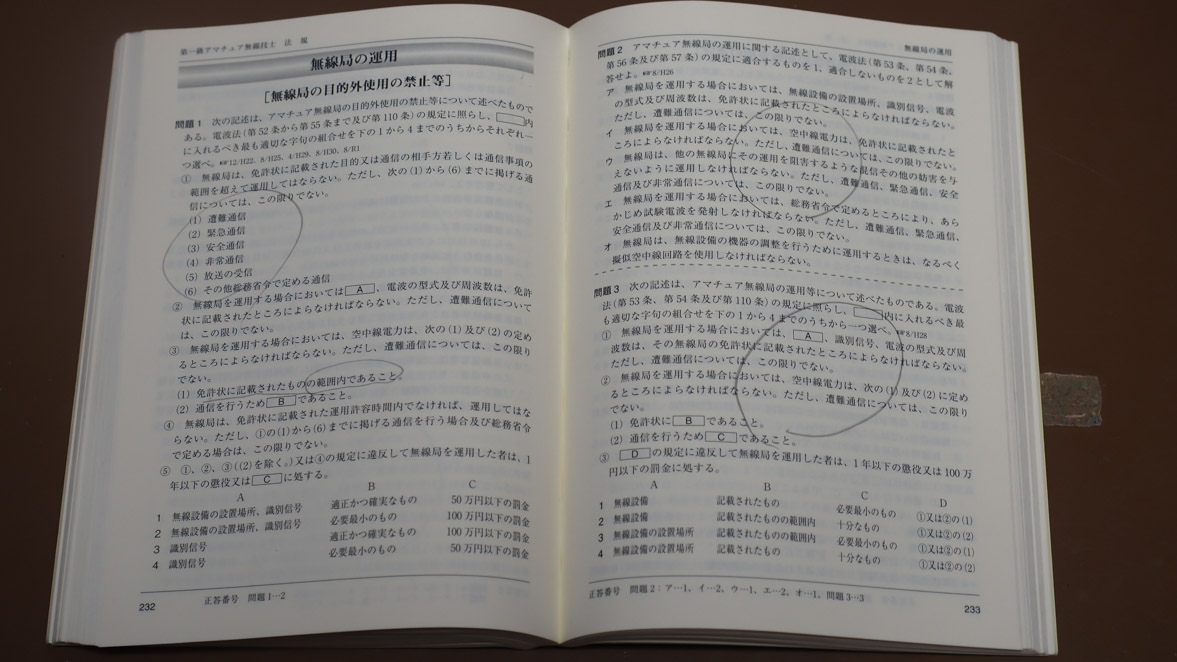 第一級アマチュア無線技士 法 規
無線局の運用
［無線局の目的外使用の禁止等］
問題1 次の記述は、アマチュア無線局の目的外使用の禁止等について述べたもので
ある。電波法（第52条から第55条まで及び第110条）の規定に照らし、　　内
に入れるべき最も適切な字句の組合せを下の1から4までのうちからそれぞれ一
つ選べ。☞12/H22、8/H25、4/H29、8/H30、8/R1
① 無線局は、免許状に記載された目的又は通信の相手方若しくは通信事項の
範囲を超えて運用してはならない。ただし、次の(1)から(6)までに掲げる通
信については、この限りでない。
(1) 遭難通信
(2) 緊急通信
(3) 安全通信
(4) 非常通信
(5) 放送の受信
(6) その他総務省令で定める通信
② 無線局を運用する場合においては A 、電波の型式及び周波数は、免許
状に記載されたところによらなければならない。ただし、遭難通信について
は、この限りでない。
③ 無線局を運用する場合においては、空中線電力は、次の(1)及び(2)の定め
るところによらなければならない。ただし、遭難通信については、この限り
でない。
(1) 免許状に記載されたものの範囲内であること。
(2) 通信を行うため B であること。
④ 無線局は、免許状に記載された運用許容時間内でなければ、運用してはな
らない。ただし、①の(1)から(6)までに掲げる通信を行う場合及び総務省令
で定める場合は、この限りでない。
⑤ ①、②、③((2)を除く。)又は④の規定に違反して無線局を運用した者は、1
年以下の懲役又は C に処する。
A B C
1 無線設備の設置場所、識別信号 適正かつ確実なもの 50万円以下の罰金
2 無線設備の設置場所、識別信号 必要最小のもの 100万円以下の罰金
3 識別信号 適正かつ確実なもの 100万円以下の罰金
4 識別信号 必要最小のもの 50万円以下の罰金
正答番号 問題1…2
232
無線局の運用
問題2 アマチュア無線局の運用に関する記述として、電波法（第53条、第54条、
第56条及び第57条）の規定に適合するものを1、適合しないものを2として解
答せよ。☞8/H26
ア 無線局を運用する場合においては、無線設備の設置場所、識別信号、電波
の型式及び周波数は、免許状に記載されたところによらなければならない。
ただし、遭難通信については、この限りでない。
イ 無線局を運用する場合においては、空中線電力は、免許状に記載されたと
ころによらなければならない。ただし、遭難通信については、この限りでない。
ウ 無線局は、他の無線局にその運用を阻害するような混信その他の妨害を与
えないように運用しなければならない。ただし、遭難通信、緊急通信、安全
通信及び非常通信については、この限りでない。
エ 無線局を運用する場合においては、総務省令で定めるところにより、あら
かじめ試験電波を発射しなければならない。ただし、遭難通信、緊急通信、
安全通信及び非常通信については、この限りでない。
オ 無線局は、無線設備の機器の調整を行うために運用するときは、なるべく
擬似空中線回路を使用しなければならない。
問題3 次の記述は、アマチュア無線局の運用等について述べたものである。電波
法（第53条、第54条及び第110条）の規定に照らし、　　内に入れるべき最
も適切な字句の組合せを下の1から4までのうちから一つ選べ。☞8/H28
① 無線局を運用する場合においては、 A 、識別信号、電波の型式及び周
波数は、その無線局の免許状に記載されたところによらなければならない。
ただし、遭難通信については、この限りでない。
② 無線局を運用する場合においては、空中線電力は、次の(1)及び(2)に定め
るところによらなければならない。ただし、遭難通信については、この限り
でない。
(1) 免許状に B であること。
(2) 通信を行うため C であること。
③ D の規定に違反して無線局を運用した者は、1年以下の懲役又は100万
円以下の罰金に処する。
A B C D
1 無線設備 記載されたもの 必要最小のもの ①又は②の(1)
2 無線設備 記載されたものの範囲内 十分なもの ①又は②の(2)
3 無線設備の設置場所 記載されたものの範囲内 必要最小のもの ①又は②の(1)
4 無線設備の設置場所 記載されたもの 十分なもの ①又は②の(2)
正答番号 問題2：ア…1、イ…2、ウ…1、エ…2、オ…1、問題3…3
233